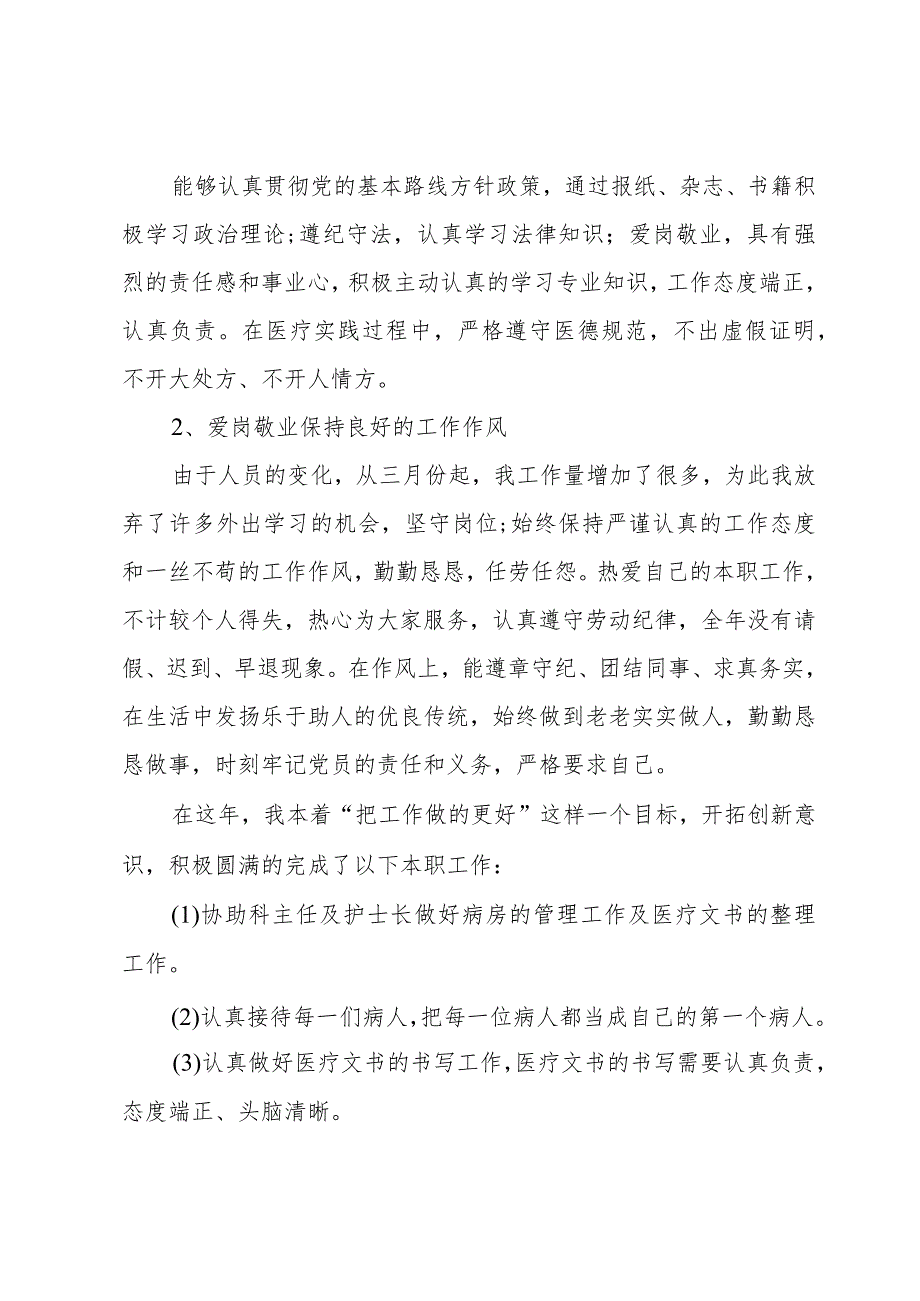 能够认真贯彻党的基本路线方针政策，通过报纸、杂志、书籍积
极学习政治理论;遵纪守法，认真学习法律知识；爱岗敬业，具有强
烈的责任感和事业心，积极主动认真的学习专业知识，工作态度端正，
认真负责。在医疗实践过程中，严格遵守医德规范，不出虚假证明，
不开大处方、不开人情方。
2、爱岗敬业保持良好的工作作风
由于人员的变化，从三月份起，我工作量增加了很多，为此我放
弃了许多外出学习的机会，坚守岗位;始终保持严谨认真的工作态度
和一丝不苟的工作作风，勤勤恳恳，任劳任怨。热爱自己的本职工作，
不计较个人得失，热心为大家服务，认真遵守劳动纪律，全年没有请
假、迟到、早退现象。在作风上，能遵章守纪、团结同事、求真务实，
在生活中发扬乐于助人的优良传统，始终做到老老实实做人，勤勤恳
恳做事，时刻牢记党员的责任和义务，严格要求自己。
在这年，我本着“把工作做的更好”这样一个目标，开拓创新意
识，积极圆满的完成了以下本职工作：
(1)协助科主任及护士长做好病房的管理工作及医疗文书的整理
工作。
(2)认真接待每一们病人，把每一位病人都当成自己的第一个病人。
(3)认真做好医疗文书的书写工作，医疗文书的书写需要认真负责，
态度端正、头脑清晰。